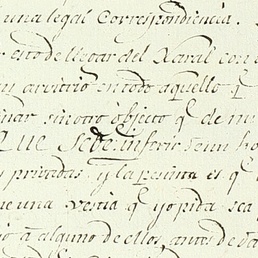 una legal Correspondiencia.
esto de llegar del Naral con
un arvitrio en todo aquello q
sin otro objeto q de mi
Que se de inferir de un ho
y privadas: y la pesima es q
una vestia q yo pida sea
a alguno de ellos, antes de